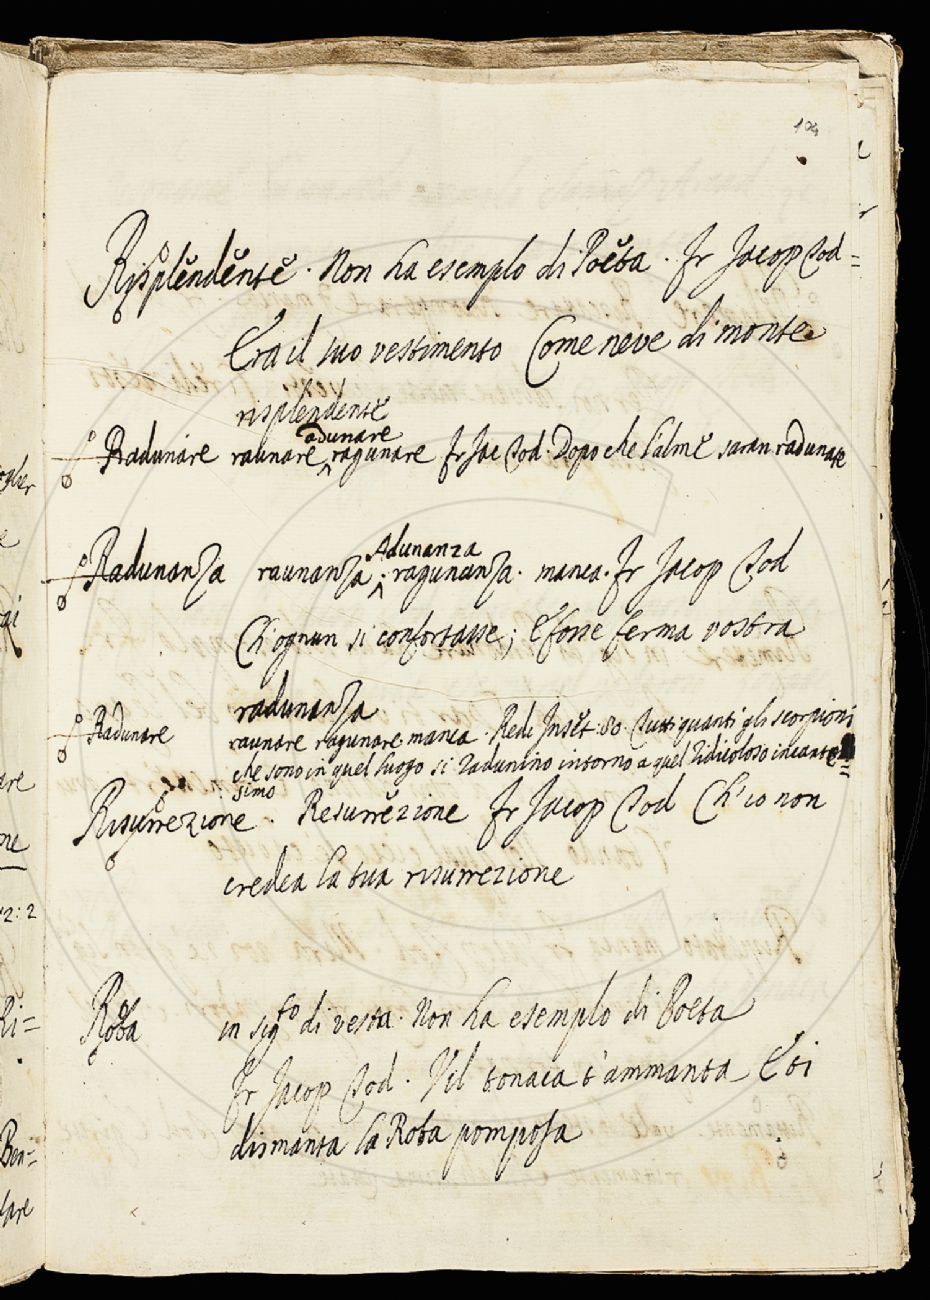 104
Risplendente. Non ha esemplo di Poeta. Fr Jacop Tod=
Era il suo vestimento Come neve di monte
risplendente
adunare
Radunare raunare ^ ragunare Fr Jac Tod. Dopo che l'alme saran radunate
Adunanza
Radunanza raunanza ^ ragunanza. manca. Fr Jacop Tod
Ch'ognun si confortasse; E fosse ferma vostra
radunanza
Radunare raunare ragunare manca. Redi Inset: 80. Tutti quanti gli scorpioni
che sono in quel luogo si radunino intorno a quel ridicoloso incante=
simo
Risurrezione. Resurrezione Fr Jacop Tod Ch'io non
credea la tua risurrezione
Roba in sigto di vesta. Non ha esemplo di Poeta
Fr Jacop Tod. Vil tonaca t'ammanta E ti
dismanta la Roba pomposa